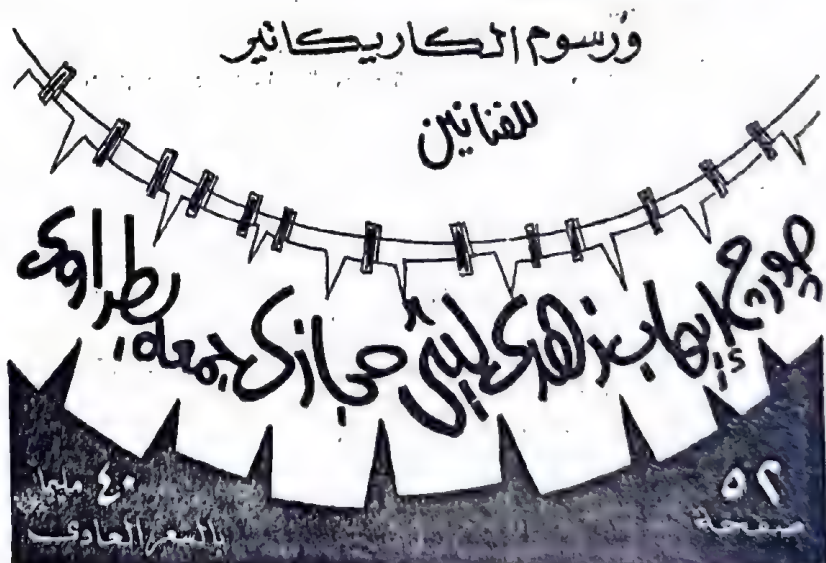 ورسوم الكاريكاتير
للفنانين
جورج إيهاب زهدى ليثى حجازى جمعه بطراوى
٥٢
صفحة
٤٠ مليما
بالسعر العادى